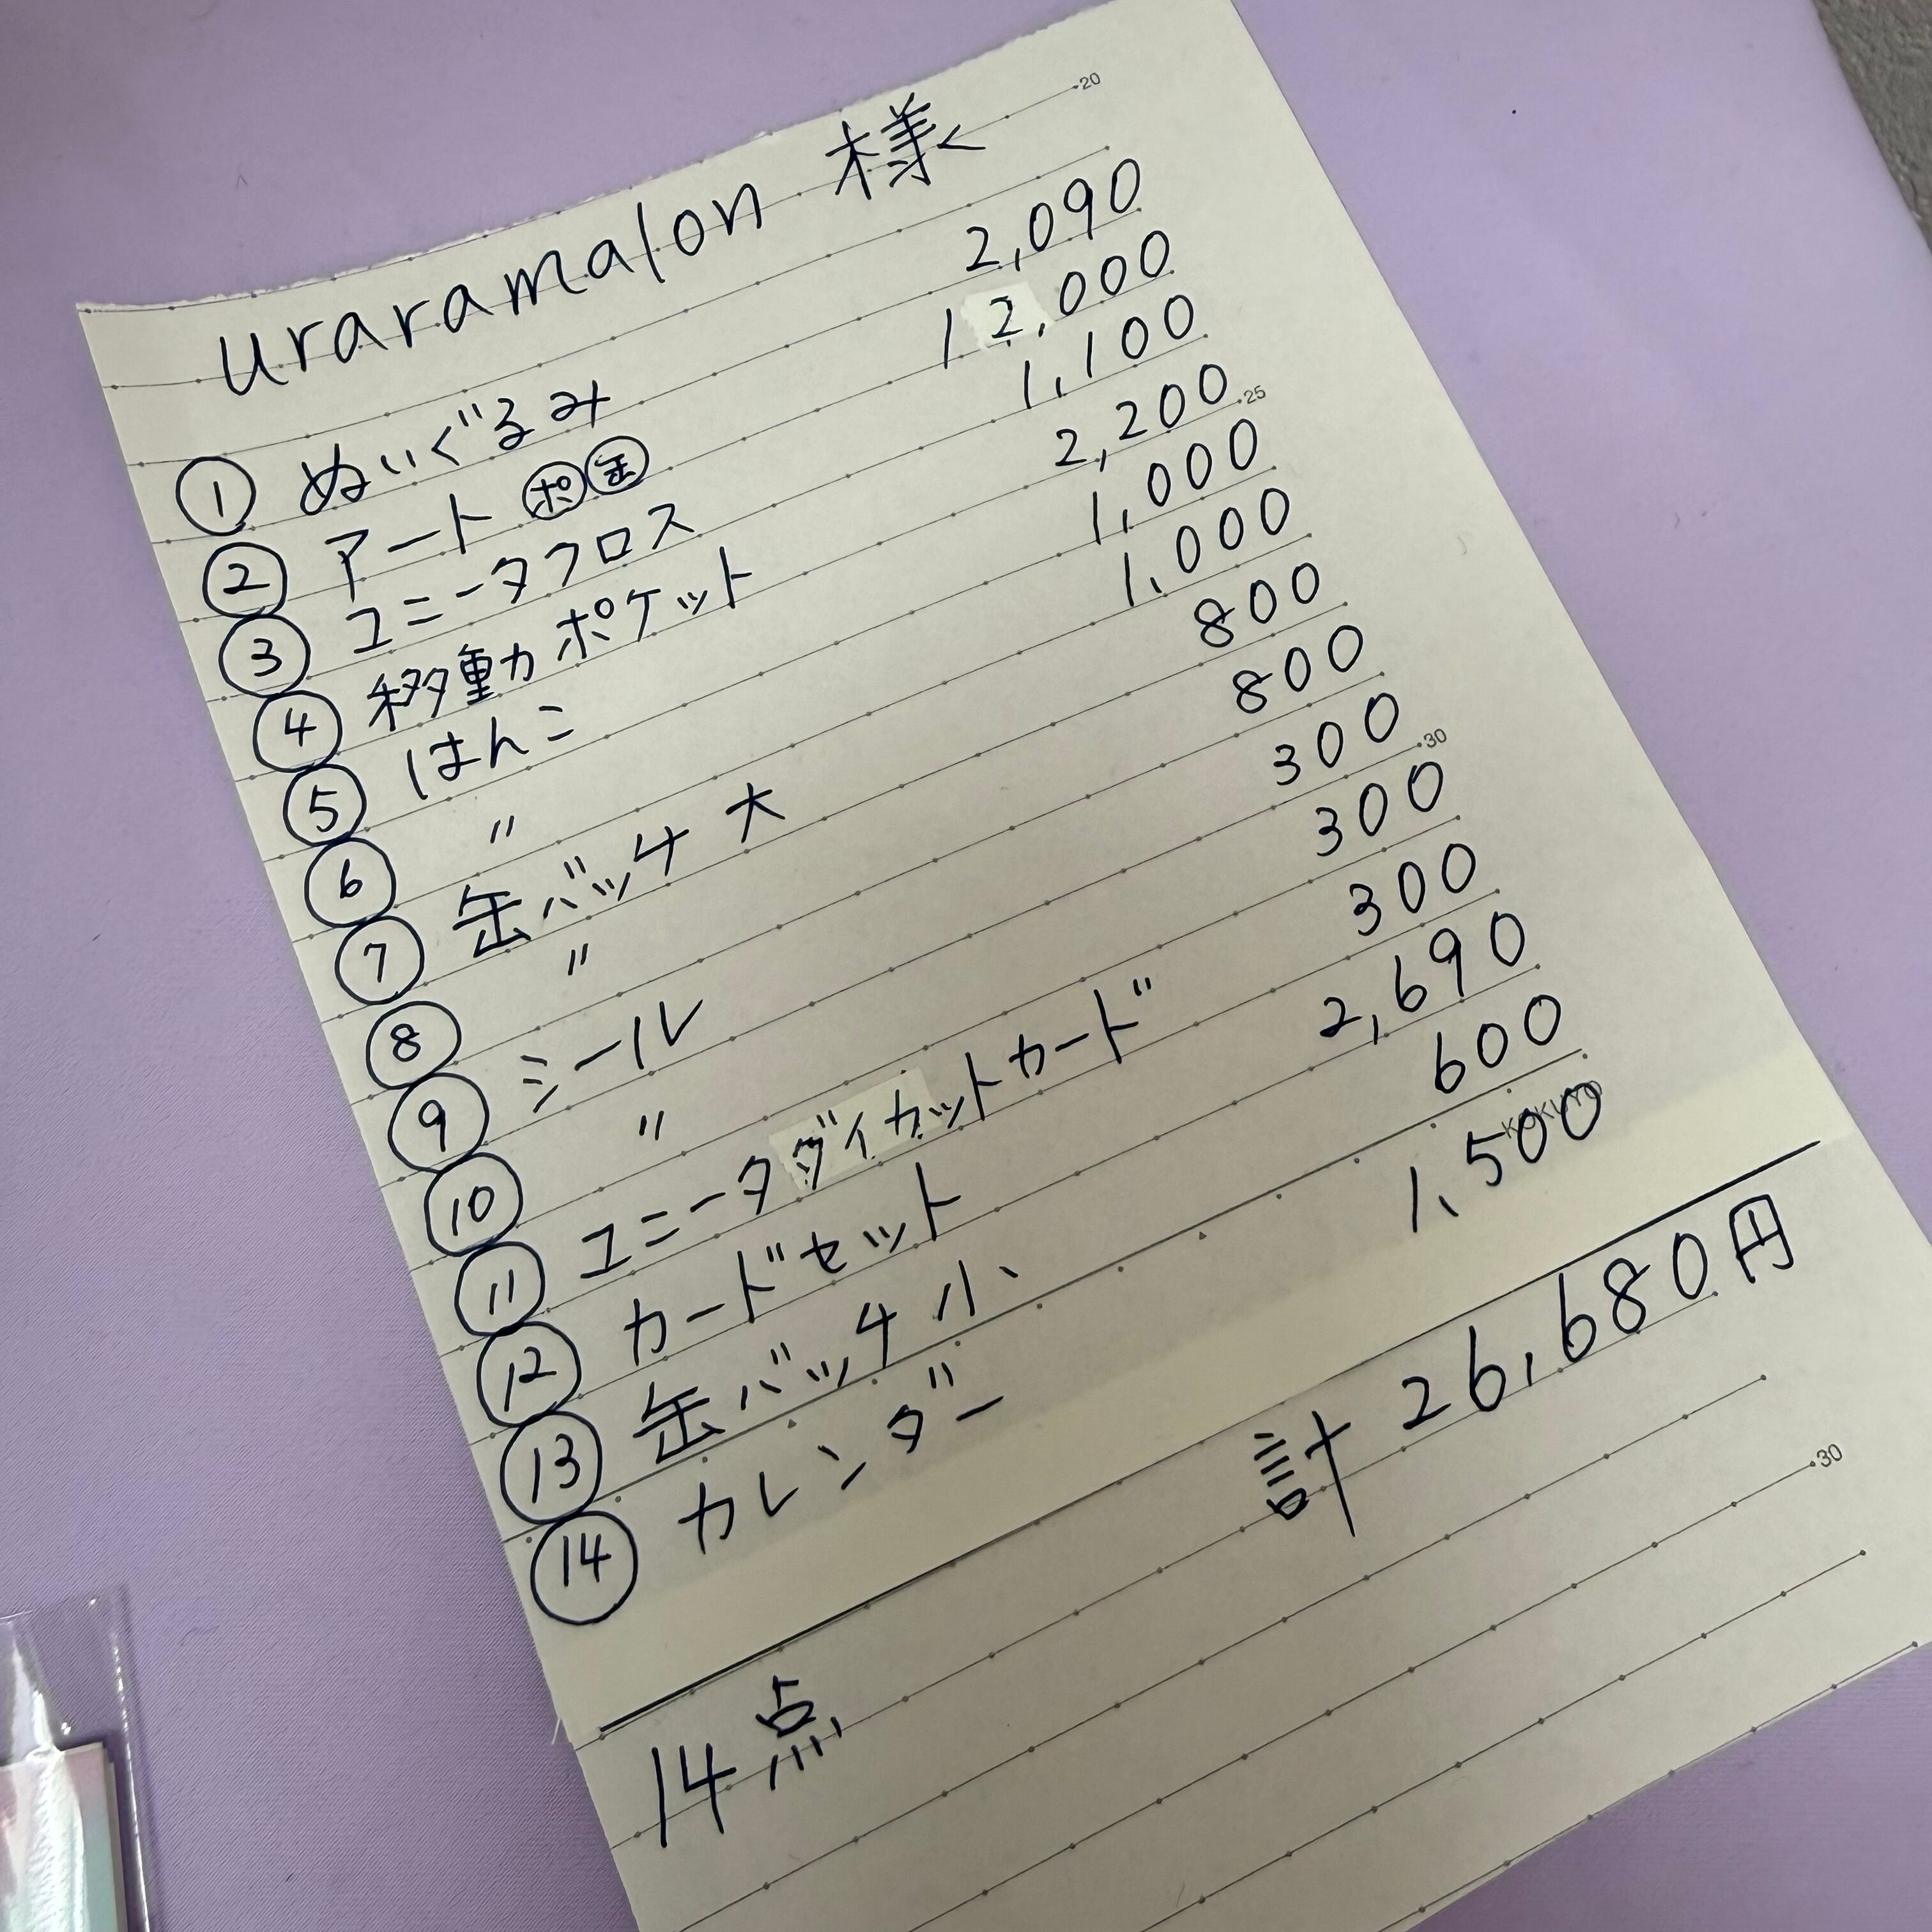 20
uraramalon 様
① ぬいぐるみ 2,090
② アート ㋭㊎ 12,000
③ ユニータフロス 1,100
④ 移動ポケット 2,200
25
⑤ はんこ 1,000
⑥ 〃 1,000
⑦ 缶バッチ 大 800
⑧ 〃 800
⑨ シール 300
30
⑩ 〃 300
⑪ ユニータダイカットカード 300
⑫ カードセット 2,690
⑬ 缶バッチ 小 600
KOKUYO
⑭ カレンダー 1,500
計 26,680円
30
14点